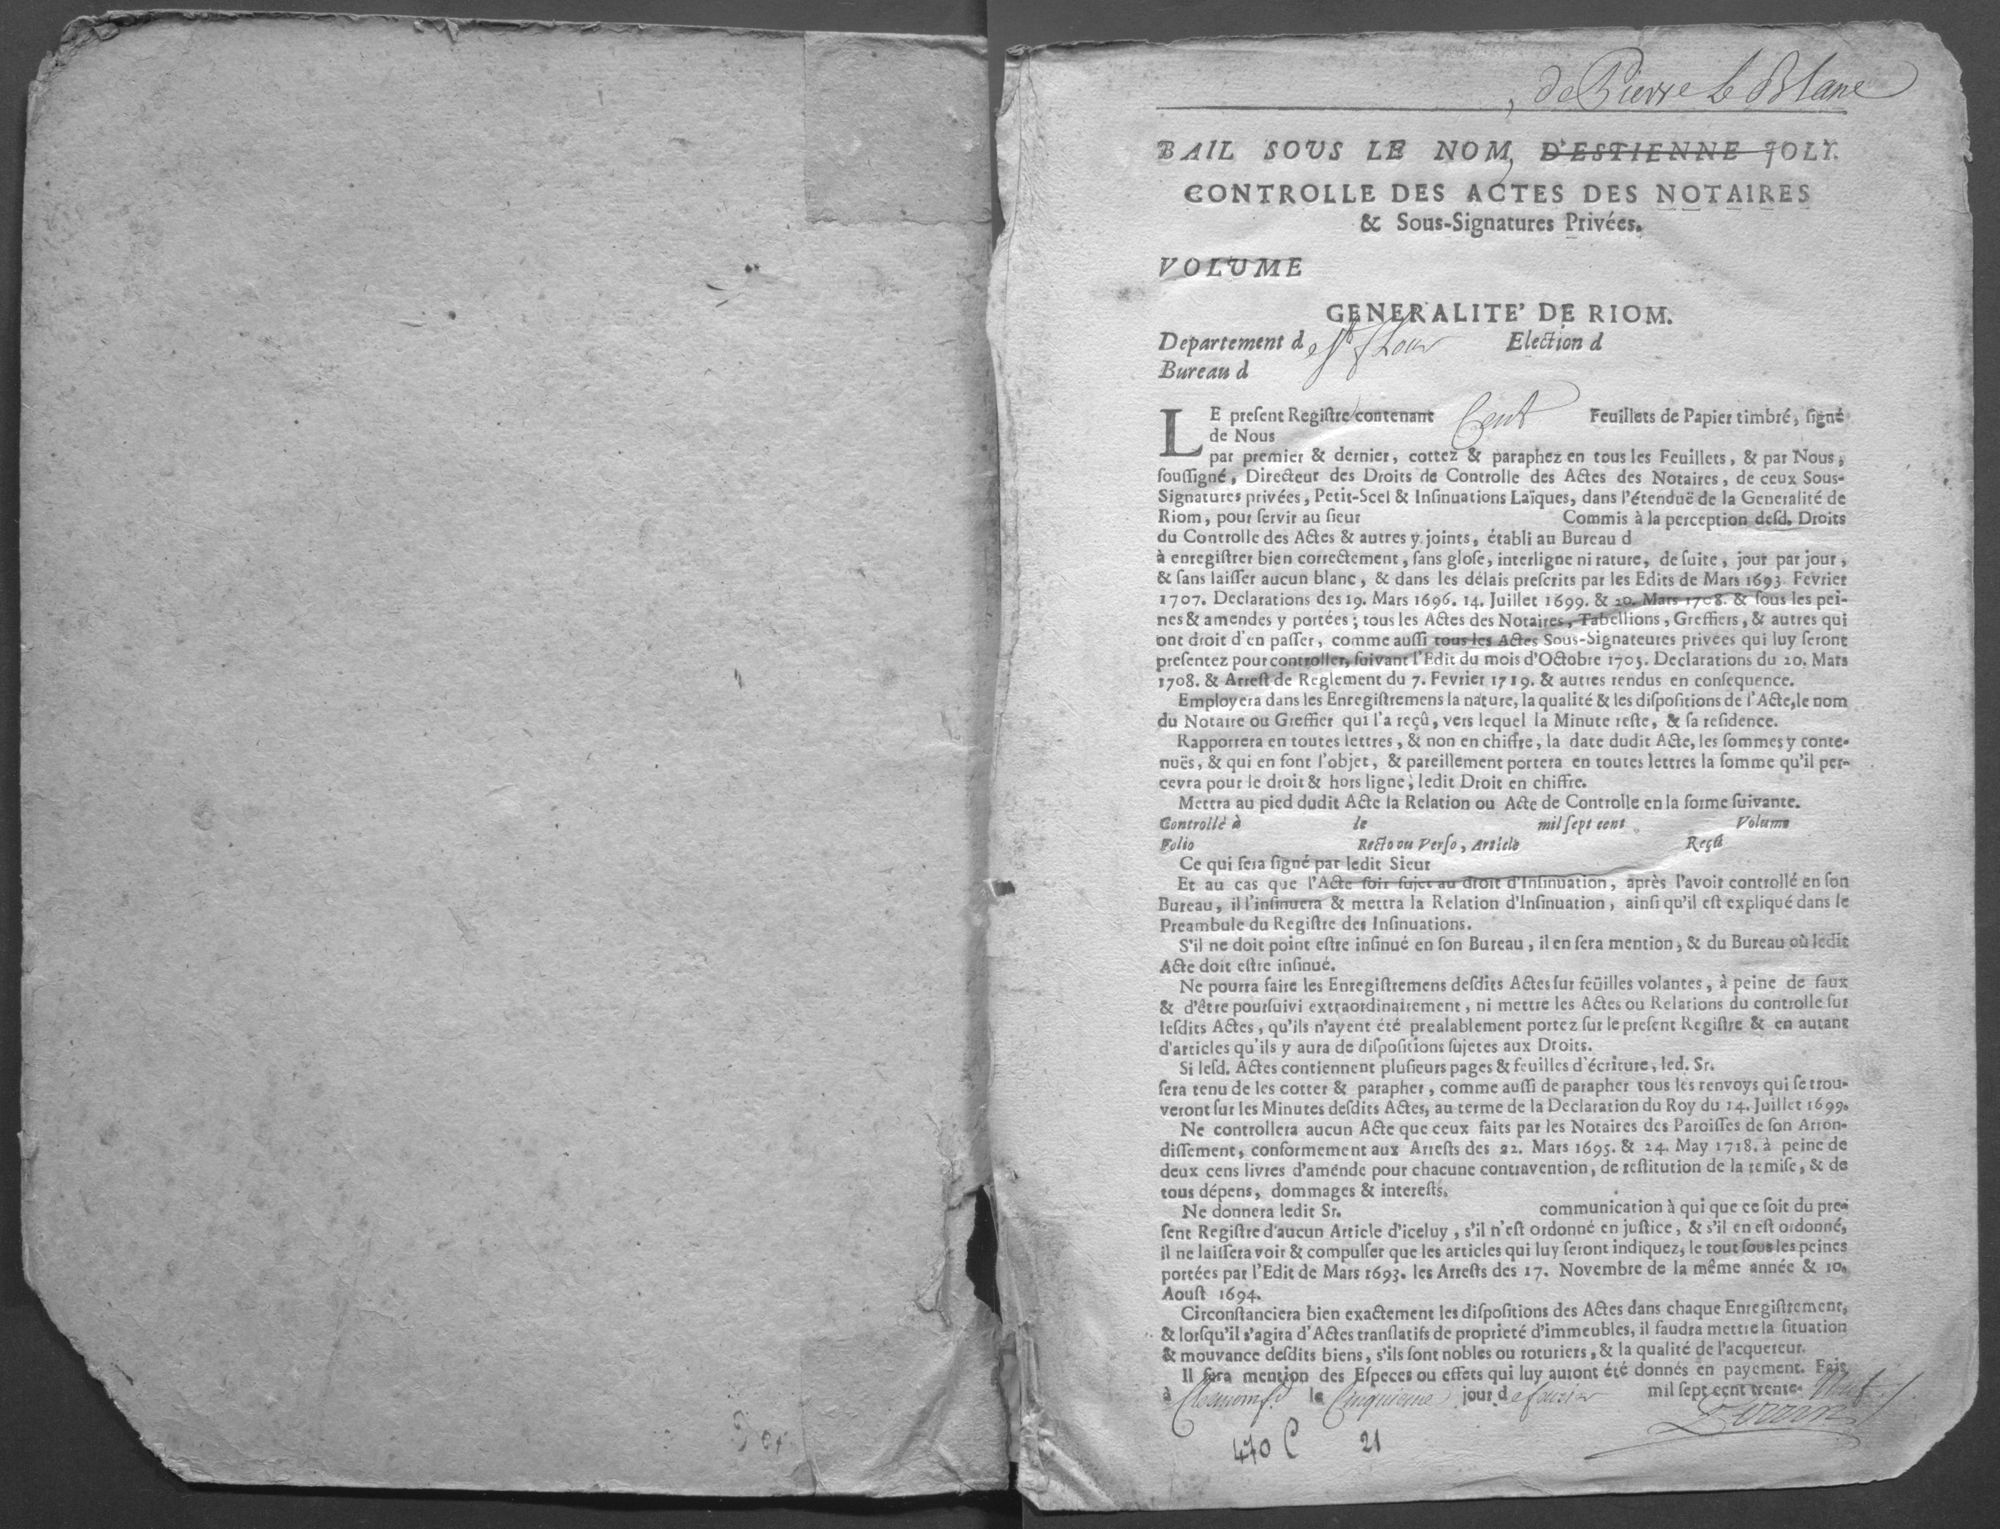 de Pierre Le Blanc
BAIL SOUS LE NOM, D'ESTIENNE JOLY.
CONTROLLE DES ACTES DES NOTAIRES
& Sous-Signatures Privées.
VOLUME
GENERALITE' DE RIOM.
Departement de St flour Election d
Bureau d
LE preſent Regiſtre contenant Cent Feuillets de Papier timbré, ſigné
de Nous
par premier & dernier, cottez & paraphez en tous les Feuillets, & par Nous,
ſouſſigné, Directeur des Droits de Controlle des Actes des Notaires, de ceux Sous-
Signatures privées, Petit-Scel & Inſinuations Laïques, dans l'étenduë de la Generalité de
Riom, pour ſervir au ſieur Commis à la perception deſd. Droits
du Controlle des Actes & autres y joints, établi au Bureau d
à enregiſtrer bien correctement, ſans gloſe, interligne ni rature, de ſuite, jour par jour,
& ſans laiſſer aucun blanc, & dans les délais preſcrits par les Edits de Mars 1693. Fevrier
1707. Declarations des 19. Mars 1696. 14. Juillet 1699. & 20. Mars 1708. & ſous les pei-
nes & amendes y portées; tous les Actes des Notaires, Tabellions, Greffiers, & autres qui
ont droit d'en paſſer, comme auſſi tous les Actes Sous-Signateures privées qui luy ſeront
preſentez pour controller, ſuivant l'Edit du mois d'Octobre 1705. Declarations du 20. Mars
1708. & Arreſt de Reglement du 7. Fevrier 1719. & autres rendus en conſequence.
Employera dans les Enregiſtremens la nature, la qualité & les diſpoſitions de l'Acte, le nom
du Notaire ou Greffier qui l'a reçû, vers lequel la Minute reſte, & ſa reſidence.
Rapportera en toutes lettres, & non en chiffre, la date dudit Acte, les ſommes y conte-
nuës, & qui en font l'objet, & pareillement portera en toutes lettres la ſomme qu'il per-
cevra pour le droit & hors ligne, ledit Droit en chiffre.
Mettra au pied dudit Acte la Relation ou Acte de Controlle en la forme ſuivante.
Controllé à le mil ſept cent Volume
Folio Recto ou Verſo, Article Reçû
Ce qui ſera ſigné par ledit Sieur
Et au cas que l'Acte ſoit ſujet au droit d'Inſinuation, après l'avoir controllé en ſon
Bureau, il l'inſinuera & mettra la Relation d'Inſinuation, ainſi qu'il eſt expliqué dans le
Preambule du Regiſtre des Inſinuations.
S'il ne doit point eſtre inſinué en ſon Bureau, il en ſera mention, & du Bureau où ledit
Acte doit eſtre inſinué.
Ne pourra faire les Enregiſtremens deſdits Actes ſur feüilles volantes, à peine de faux
& d'être pourſuivi extraordinairement, ni mettre les Actes ou Relations du controlle ſur
leſdits Actes, qu'ils n'ayent été prealablement portez ſur le preſent Regiſtre & en autant
d'articles qu'ils y aura de diſpoſitions ſujetes aux Droits.
Si leſd. Actes contiennent pluſieurs pages & feuilles d'écriture, led. Sr.
ſera tenu de les cotter & parapher, comme auſſi de parapher tous les renvoys qui ſe trou-
veront ſur les Minutes deſdits Actes, au terme de la Declaration du Roy du 14. Juillet 1699.
Ne controllera aucun Acte que ceux faits par les Notaires des Paroiſſes de ſon Arron-
diſſement, conformement aux Arreſts des 22. Mars 1695. & 24. May 1718. à peine de
deux cens livres d'amende pour chacune contravention, de reſtitution de la remiſe, & de
tous dépens, dommages & intereſts.
Ne donnera ledit Sr. communication à qui que ce ſoit du pre-
ſent Regiſtre d'aucun Article d'iceluy, s'il n'eſt ordonné en juſtice, & s'il en eſt ordonné,
il ne laiſſera voir & compulſer que les articles qui luy ſeront indiquez, le tout ſous les peines
portées par l'Edit de Mars 1693. les Arreſts des 17. Novembre de la même année & 10.
Aouſt 1694.
Circonſtanciera bien exactement les diſpoſitions des Actes dans chaque Enregiſtrement,
& lorſqu'il s'agira d'Actes tranſlatifs de proprieté d'immeubles, il faudra mettre la ſituation
& mouvance deſdits biens, s'ils ſont nobles ou roturiers, & la qualité de l'acquereur.
Il ſera mention des Eſpeces ou effets qui luy auront été donnés en payement. Fait
à le Cinquieme jour de mil ſept cent trente-
470 C 21